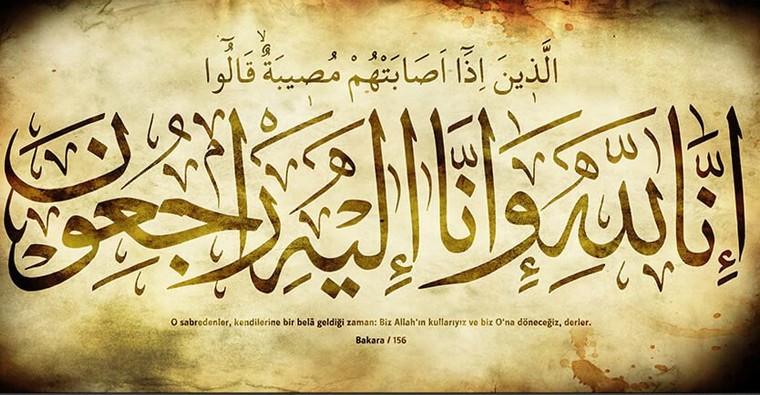 الَّذٖينَ اِذَٓا اَصَابَتْهُمْ مُصٖيبَةٌۙ قَالُٓوا
إِنَّا لِلّٰهِ وَإِنَّا إِلَيْهِ رَاجِعُونَ
O sabredenler, kendilerine bir belâ geldiği zaman: Biz Allah'ın kullarıyız ve biz O'na döneceğiz, derler.
Bakara / 156